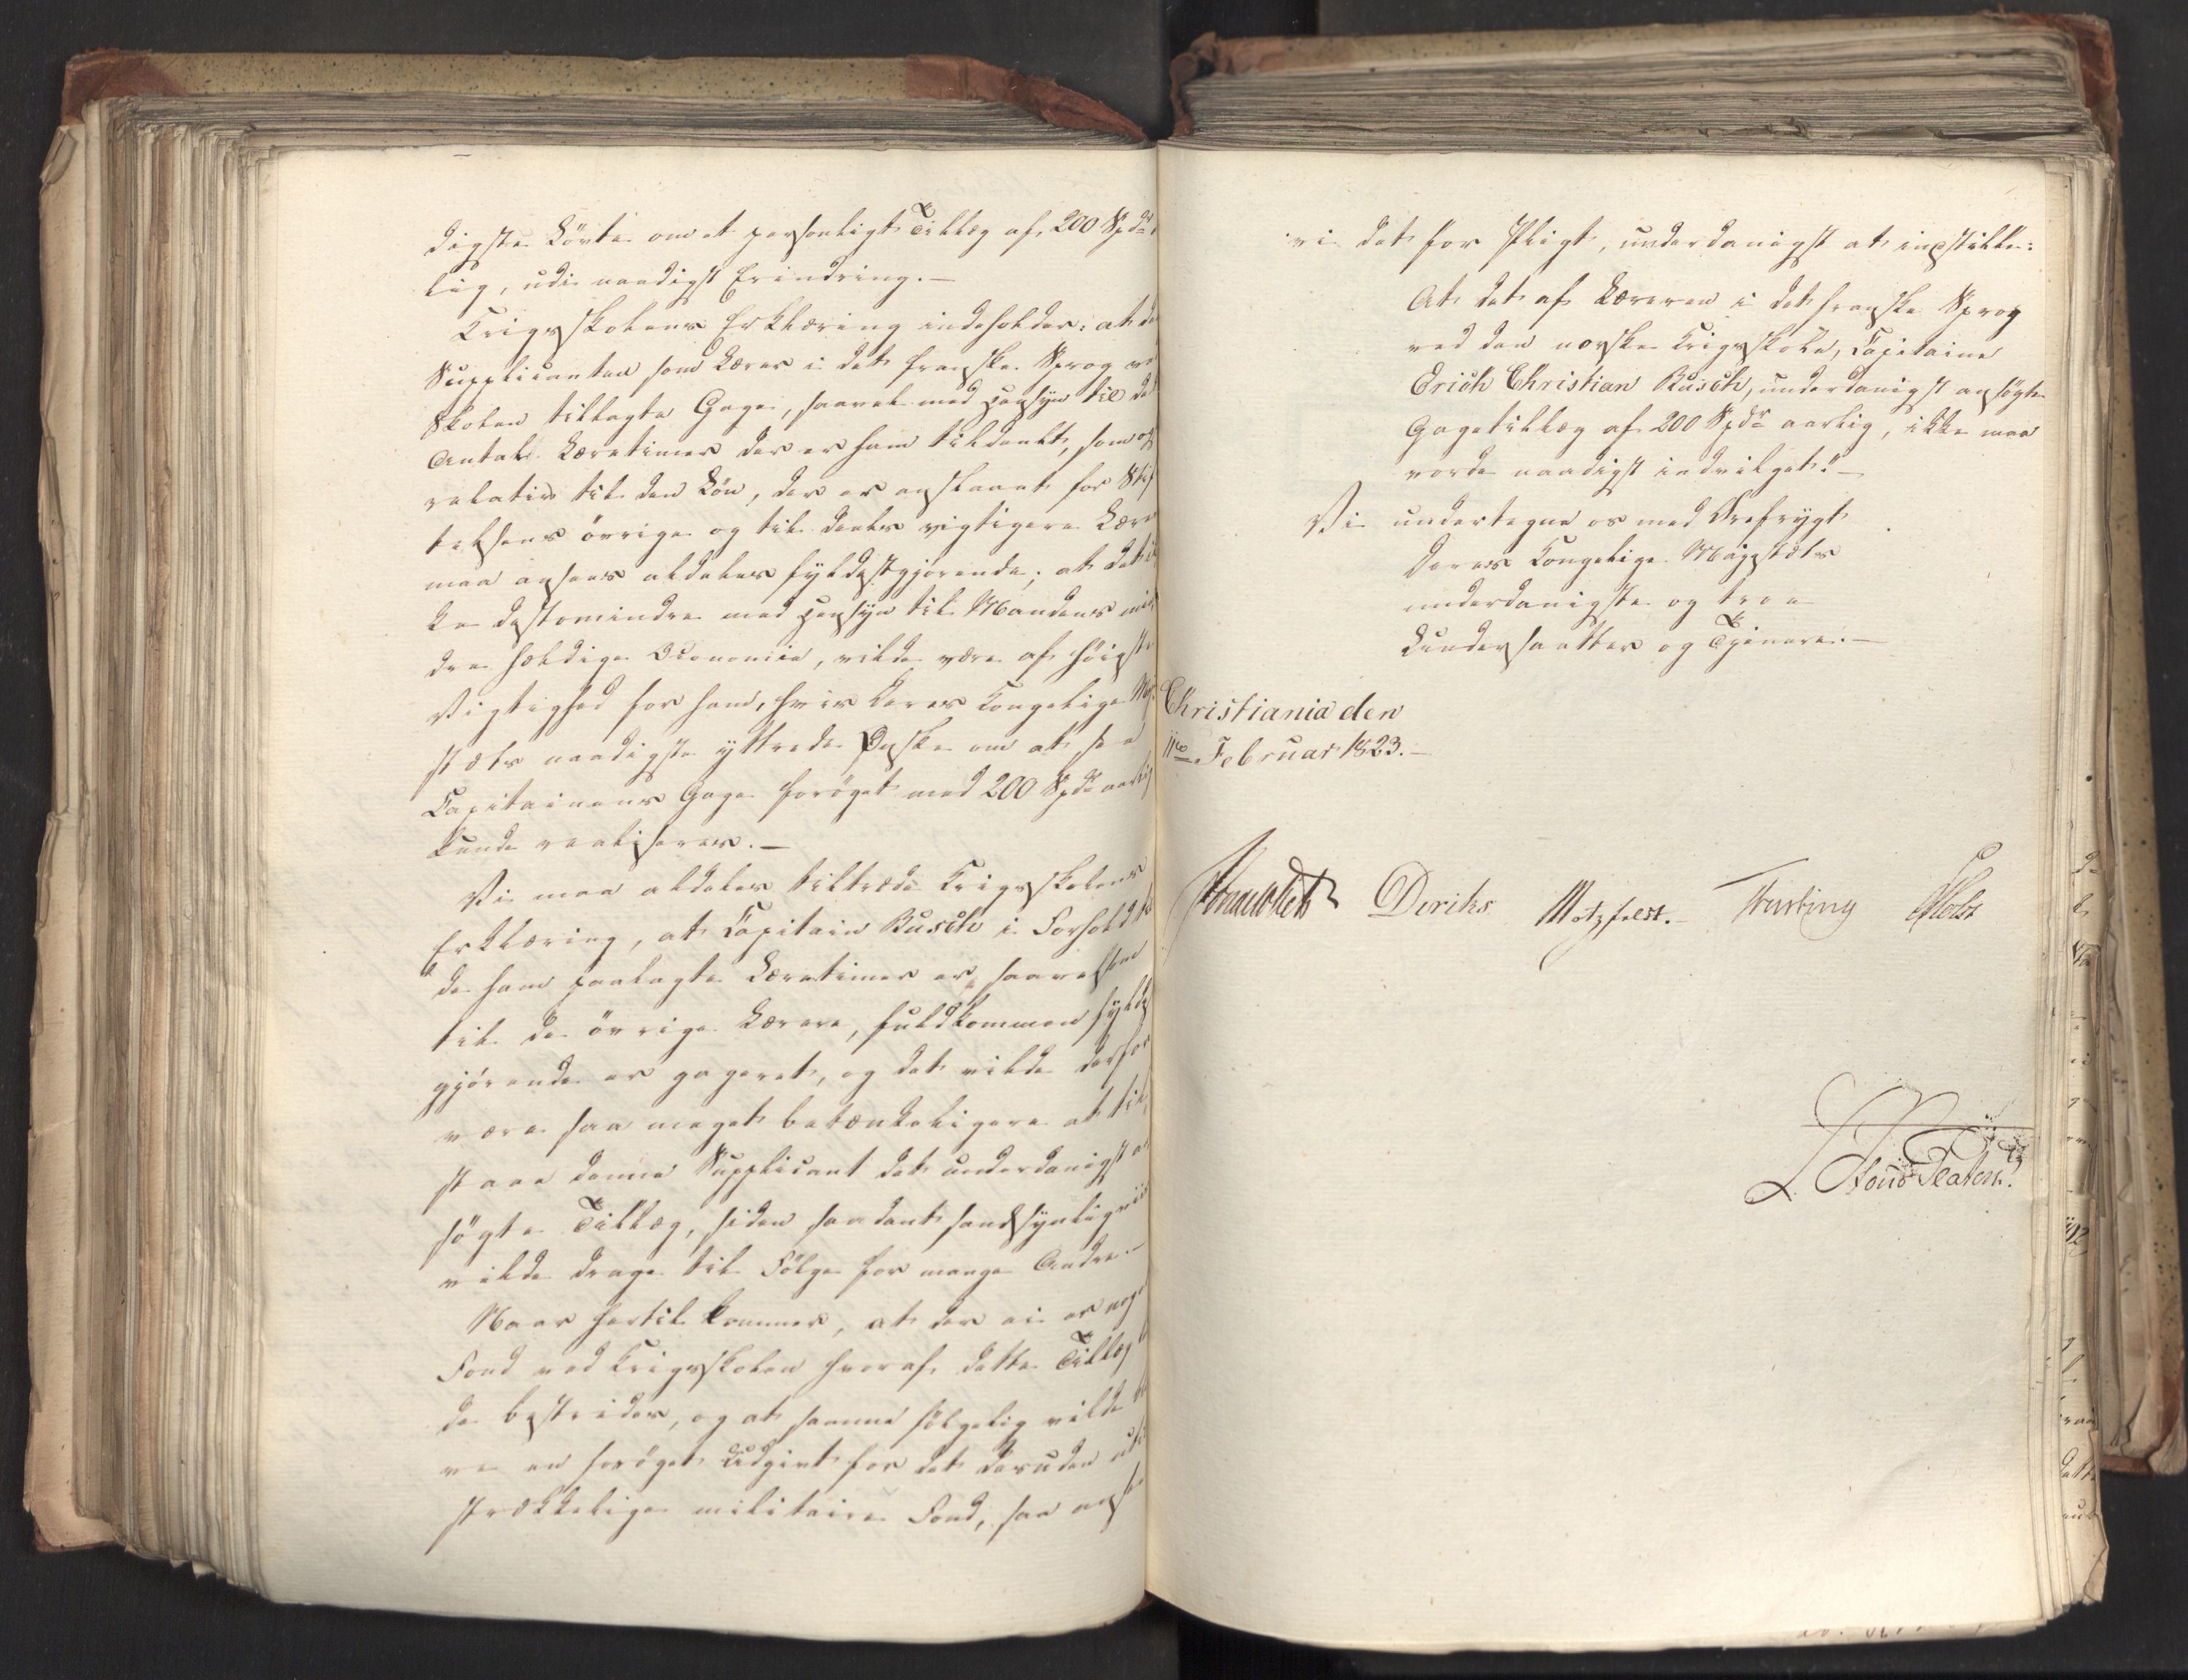 digste Løvte om et personligt Tillæg af 200 Spdr
lig, udi naadigst Erindring.—
Krigsskolens Erklæring indeholder: at de
Supplicanten som Lærer i det franske Sprog ve
Skolen tillagte Gage, saavel med Hensyn til det
Antal Læretimer der er ham tildeelt, som og
relativ til den Løn, der er anslaaet for Stif
telsens övrige og til deels vigtigere Lære
maa ansees aldeles fyldestgjörende; at det i
ke destomindre med Hensyn til Mandens min
dre heldige Oconomie, vilde være af höieste
Vigtighed for ham, hvis Deres Kongelige Maj
stæts naadigste yttrede Ønske om at see
Capitainens Gage foröget med 200 Spdr aarlig
kunde realiseres.—
Vi maa aldeles tiltræde Krigsskolens
Erklæring, at Capitain Rusch i Forhold til
de ham paalagte Læretimer er, saavelsom
til de övrige Lærere, fuldkommen fyldest
gjörende er gageret, og det vilde derfor
være saa meget betænkeligere at til
staae denne Supplicant det underdanigst an
sögte Tillæg, siden saadant sandsynligviis
vilde drage til Fölge for mange Andre.—
Naar hertil kommer, at der ei er noge
Fond ved Krigsskolen hvoraf dette Tillæg k
de bestrides, og at samme fölgelig vilde bl
ve en foröget Udgivt for det desuden uti
strækkelige militaire Fond, saa anse
vi det for Pligt, underdanigst at indstille:
At det af Læreren i det franske Sprog
ved den norske Krigsskole, Capitaine
Erich Christian Rusch, underdanigst ansögte
Gagetillæg af 200 Spdr aarlig, ikke maa
vorde naadigst indvilget.—
Vi undertegne os med Ærefrygt
Deres Kongelige Majestæts
underdanigste og troe
Undersaatter og Tjenere.—
Christiania den
11te Februar 1823.—
Diriks Motzfeldt. Treschow Holst